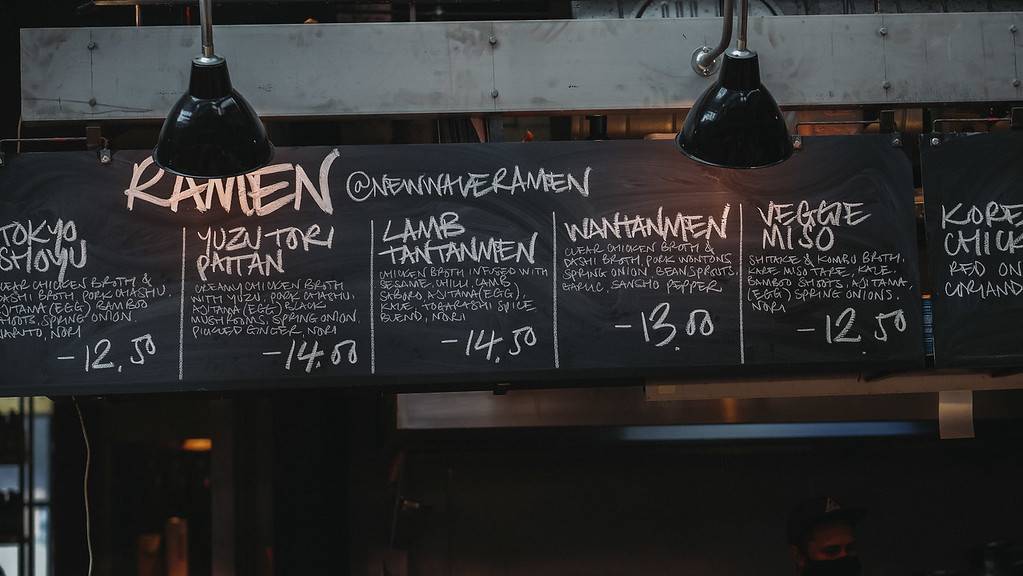 RAMEN @NEWWAVERAMEN
TOKYO
SHOYU
CLEAR CHICKEN BROTH &
DASHI BROTH, PORK CHASHU,
AJITAMA (EGG) BAMBOO
SHOOTS, SPRING ONION.
NARUTO, NORI
-12.50
YUZU TORI
PAITAN
CREAMY CHICKEN BROTH
WITH YUZU, PORK CHASHU,
AJITAMA (EGG) BLACK
MUSHROOMS, SPRING ONION.
PICKLED GINGER, NORI
-14.00
LAMB
TANTANMEN
CHICKEN BROTH INFUSED WITH
SESAME, CHILLI, LAMB
SOBORO, AJITAMA (EGG)
KALE, TOGARASHI SPICE
BLEND, NORI
-14.50
WANTANMEN
CLEAR CHICKEN BROTH &
DASHI BROTH, PORK WONTONS,
SPRING ONION BEANSPROUTS,
GARLIC, SANSHO PEPPER
-13.00
VEGGIE
MISO
SHITAKE & KOMBU BROTH,
KARE MISO TARE, KALE,
BAMBOO SHOOTS, AJITAMA
(EGG) SPRING ONIONS.
NORI
-12.50
KORE
CHICK
RED ON
CORIAND